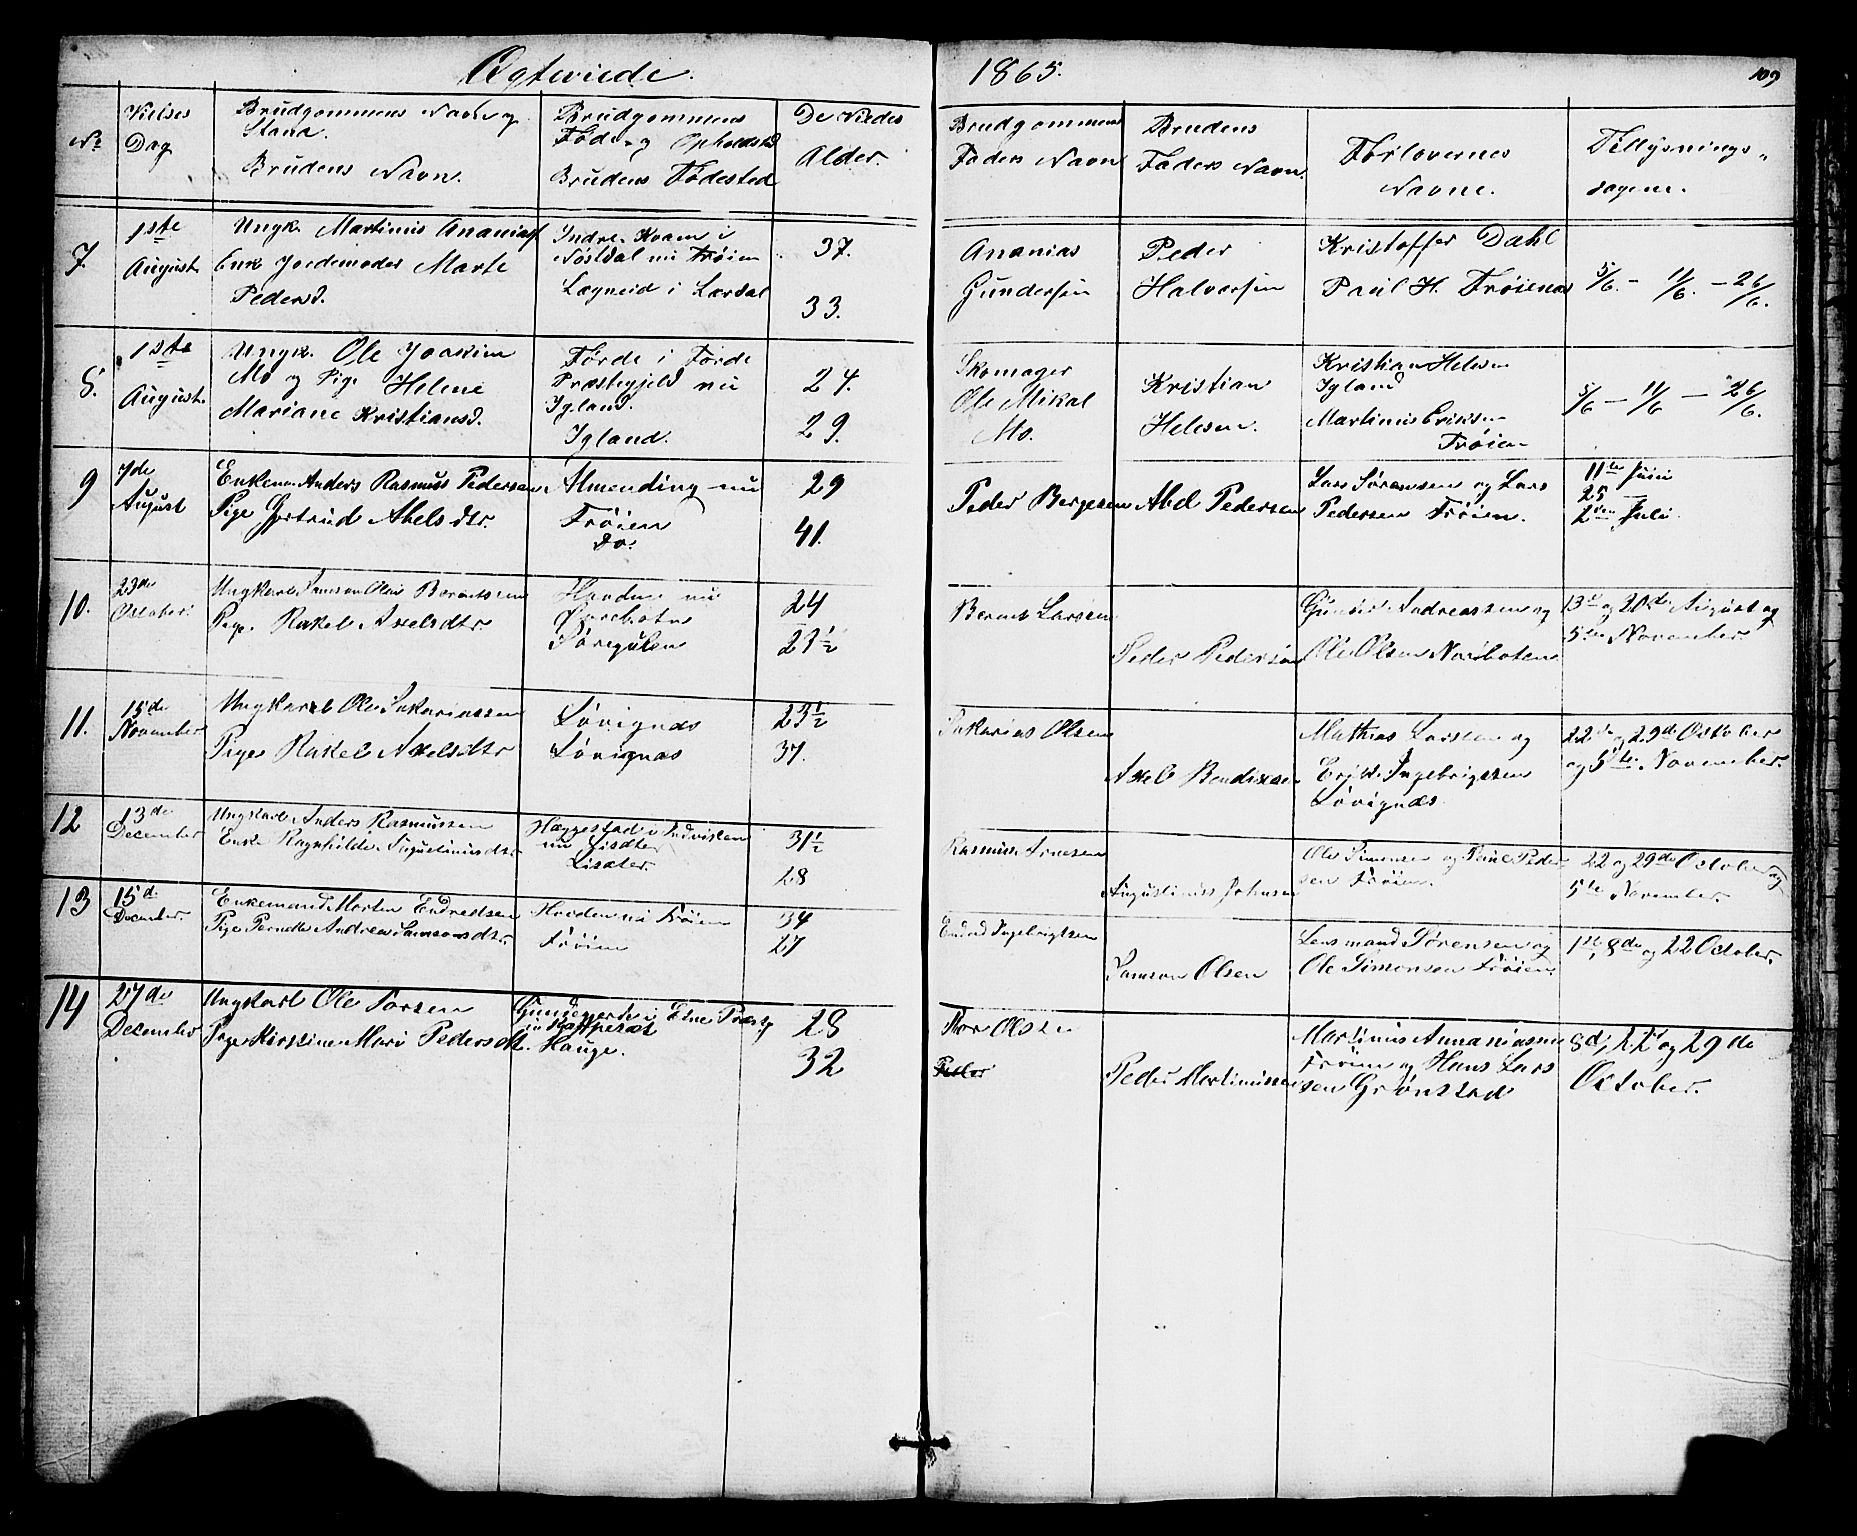 Ægteviede.
1865.
109
No
Vielses
Dag
Brudgommens Navn og
Stand.
Brudens Navn.
Brudgommens
Føde- og Opholdsted
Brudens Fødested
De Viedes
Alder.
Brudgommens
Faders Navn
Brudens
Faders Navn.
Forlovernes
Navne.
Tillysnings-
dagene.
7.
1ste
August.
Ungk. Martinus Ananias
Enk Jordemoder Marte
Pedersd.
Indre-Kvam i
nu Frøien
i Lærdal
37.
33.
Ananias
Gundersen
Peder
Halvorsen
Kristoffer Dahl
Paul H. Frøienes
5/6. - 11/6. - 26/6.
8.
1ste
August.
Ungk. Ole Joakim
Mo og Pige Helene
Mariane Kristiansd.
Førde i Førde
Præstegjeld nu
Igland.
Igland.
24.
29.
Skomager
Ole Mikal
Mo.
Kristian
Helesen.
Kristian Helesen
Igland
Martinus Eriksen
Frøien
5/6 - 11/6 - 26/6.
9
7de
August
Enkem. Anders Rasmus Pedersen
Pige Gertrud Abelsdtr.
Almending nu
Frøien
Do.
29
41.
Peder Bergesen
Abel Pedersen
Lars Sørensen og Lars
Pedersen Frøien.
11te Juni
25 -
2den Juli
10.
23de
October
Ungkarl Samson Olai Berentsen
Pige Rakel Axelsdtr.
Hovden nu
Sørgulen
24
23½
Berent Larsen
Peder Pedersen
Gunder Andreassen og
Ole Olsen Nordboten
13de og 20de August og
5te November
11.
15de
November
Ungkarl Ole Sakariassen
Pige Rakel Axelsdtr
Løvignæs
Løvignæs
23½
37.
Sakarias Olsen
Axel Bendixsen
Mathias Larsen og
Erik Ingebrigtsen
Løvignæs.
22de og 29de October
og 5te November.
12
13de
December
Ungkarl Anders Rasmussen
Enke Ragnhilda Augustinusdtr
Heggestad i Indviken
nu Lisæter
Lisæter.
31½
28
Rasmus Arnesen
Augustinus Johnsen
Ole Simonsen og Paul Peder
sen Frøien.
22 og 29de October og
5te November.
13
15d.
December
Enkemand Morten Endredsen
Pige Pernelle Andrea Samsonsdtr.
Hovden nu Frøien
Frøien
34
27
Endred Ingebrigtsen
Samson Olsen
Lensmand Sørensen og
Ole Simonsen Frøien
1ste, 8de og 22 October.
14
27de
December
Ungkarl Ole Torsen
Pige Kirstine Mari Pedersdtr.
i Etne Præstg
nu
Hauge.
28
32
Tor Olsen
Peder Martinussen
Martinus Annaniassen
Frøien og Hans Lars
sen Grønstad
8d, 22d og 29de
October.